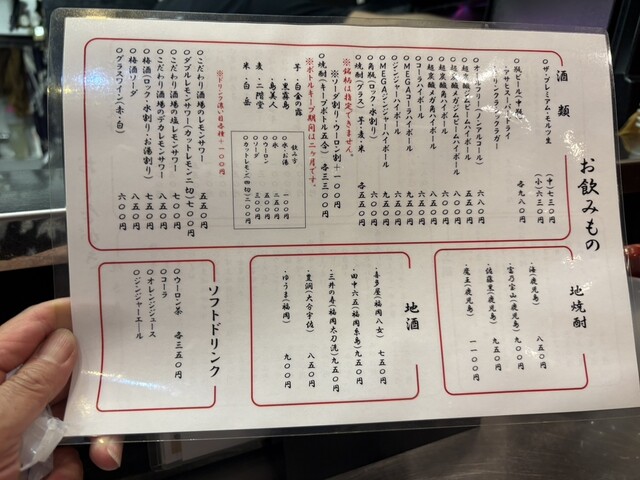 お飲みもの
酒類
○ザ・プレミアム・モルツ生
(中)七三〇円
(小)六三〇円
○瓶ビール(中瓶)
・アサヒスーパードライ
・キリンクラシックラガー
各九八〇円
○オールフリー(ノンアルコール)
六八〇円
○超炭酸ジムビームハイボール
五五〇円
○超炭酸メガジムビームハイボール
九五〇円
○超炭酸角ハイボール
六六〇円
○超炭酸メガ角ハイボール
○コーラハイボール
○MEGAコーラハイボール
九五〇円
○ジンジャーハイボール
○MEGAジンジャーハイボール
九五〇円
○角瓶(ロック・水割り)
六〇〇円
○焼酎(グラス) 芋・麦・米
各五五〇円
※銘柄は指定できません。
※ソーダ割り・ウーロン割+一〇〇円
○焼酎(キープボトル五合)
各三三〇〇円
※ボトルキープ期間は二ヶ月です。
芋・白金の露
・黒霧島
・島美人
麦・二階堂
米・白岳
飲み方
○水・お湯
一〇〇円
○氷
二五〇円
○ウーロン
○ソーダ
三〇〇円
○カットレモン(四切)二〇〇円
※ドリンク濃い目各種+一〇〇円
○こだわり酒場のレモンサワー
五五〇円
○ダブルレモンサワー(カットレモン二切)七〇〇円
○こだわり酒場の塩レモンサワー
○こだわり酒場のデカレモンサワー
八五〇円
○梅酒(ロック・水割り・お湯割り)
七五〇円
○梅酒ソーダ
八五〇円
○グラスワイン(赤・白)
六〇〇円
地焼酎
・海(鹿児島)
八五〇円
・富乃宝山(鹿児島)
九〇〇円
・佐藤黒(鹿児島)
九五〇円
・魔王(鹿児島)
一一〇〇円
地酒
・喜多屋(福岡八女)
七五〇円
・田中六五(福岡糸島)
九五〇円
・三井の寿(福岡太刀洗)
九五〇円
・豊潤(大分宇佐)
八五〇円
・ゆうま(福岡)
九〇〇円
ソフトドリンク
○ウーロン茶
○コーラ
○オレンジジュース
○ジンジャーエール
各三五〇円